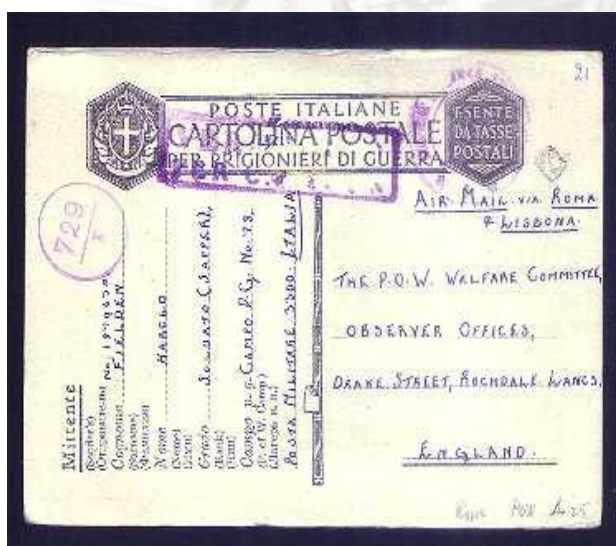 21
POSTE ITALIANE
CARTOLINA POSTALE
PER PRIGIONIERI DI GUERRA
ESENTE
DA TASSE
POSTALI
729
AIR MAIL VIA ROMA
& LISBONA.
THE P.O.W. WELFARE COMMITTEE,
OBSERVER OFFICES,
DRAKE STREET, ROCHDALE LANCS,
ENGLAND.
Mittente
(Sender's)
Cognome FIELDEN
(Surname)
Nome HAROLD
(Name)
Grado SOLDATO (SAPPER)
(Rank)
Campo p. g. CAMPO P.G. No. 73.
(P. of W. Camp)
POSTA MILITARE 3200 ITALIA
POW